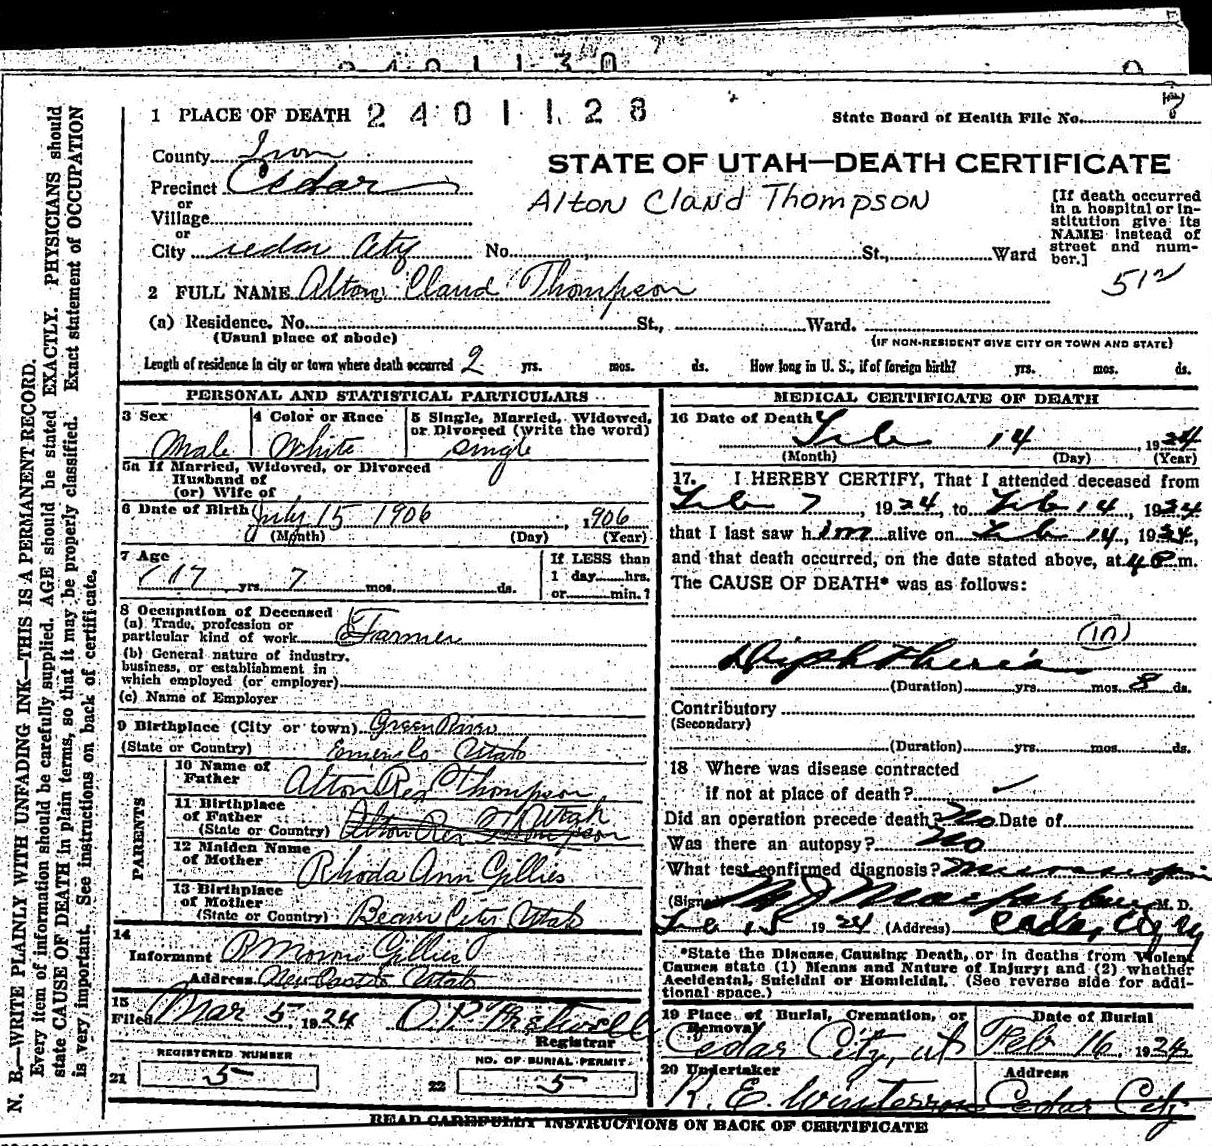 2401130
1 PLACE OF DEATH 2401128
State Board of Health File No.
County Iron
STATE OF UTAH—DEATH CERTIFICATE
Precinct Cedar
Alton Claud Thompson
or
Village
or
City Cedar City No. St., Ward
[If death occurred
in a hospital or in-
stitution give its
NAME instead of
street and num-
ber.]
512
2 FULL NAME Alton Claud Thompson
(a) Residence. No. St., Ward.
(Usual place of abode)
(IF NON-RESIDENT GIVE CITY OR TOWN AND STATE)
Length of residence in city or town where death occurred 2 yrs. mos. ds. How long in U. S., if of foreign birth? yrs. mos. ds.
PERSONAL AND STATISTICAL PARTICULARS
3 Sex
Male
4 Color or Race
White
5 Single, Married, Widowed,
or Divorced (write the word)
single
5a If Married, Widowed, or Divorced
Husband of
(or) Wife of
6 Date of Birth July 15 1906, 1906
(Month) (Day) (Year)
7 Age
17 yrs. 7 mos. ds.
If LESS than
1 day hrs.
or min.?
8 Occupation of Deceased
(a) Trade, profession or
particular kind of work Farmer
(b) General nature of industry,
business, or establishment in
which employed (or employer)
(c) Name of Employer
9 Birthplace (City or town) Green River
(State or Country) Emery Co Utah
PARENTS
10 Name of
Father Alton Rex Thompson
11 Birthplace
of Father Utah
(State or Country) Alton Rex Thompson
12 Maiden Name
of Mother Rhoda Ann Gillies
13 Birthplace
of Mother
(State or Country) Beaver City Utah
14
Informant Moroni Gillies
Address New Castle Utah
15
Filed Mar 5, 1924
Registrar
REGISTERED NUMBER
21 5
NO. OF BURIAL PERMIT
22 5
MEDICAL CERTIFICATE OF DEATH
16 Date of Death
Feb 14, 1924
(Month) (Day) (Year)
17. I HEREBY CERTIFY, That I attended deceased from
Feb 7, 1924, to Feb 14, 1924
that I last saw him alive on Feb 14, 1924,
and that death occurred, on the date stated above, at 4 P m.
The CAUSE OF DEATH* was as follows:
(10)
Diphtheria
(Duration) yrs. mos. 8 ds.
Contributory
(Secondary)
(Duration) yrs. mos. ds.
18 Where was disease contracted
if not at place of death?
Did an operation precede death? No Date of
Was there an autopsy? No
What test confirmed diagnosis?
(Signed) M J Macfarlane M. D.
Feb 15 1924 (Address) Cedar City
*State the Disease Causing Death, or in deaths from Violent
Causes state (1) Means and Nature of Injury; and (2) whether
Accidental, Suicidal or Homicidal. (See reverse side for addi-
tional space.)
19 Place of Burial, Cremation, or
Removal
Cedar City, ut
Date of Burial
Feb 16, 1924
20 Undertaker
R. E. Winterrose
Address
Cedar City
READ CAREFULLY INSTRUCTIONS ON BACK OF CERTIFICATE
N. B.—WRITE PLAINLY WITH UNFADING INK—THIS IS A PERMANENT RECORD.
Every item of information should be carefully supplied. AGE should be stated EXACTLY. PHYSICIANS should
state CAUSE OF DEATH in plain terms, so that it may be properly classified. Exact statement of OCCUPATION
is very important. See instructions on back of certificate.